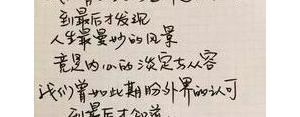 到最后才发现
人生最曼妙的风景
竟是内心的淡定与从容
我们曾如此期盼外界的认可
到最后才知道